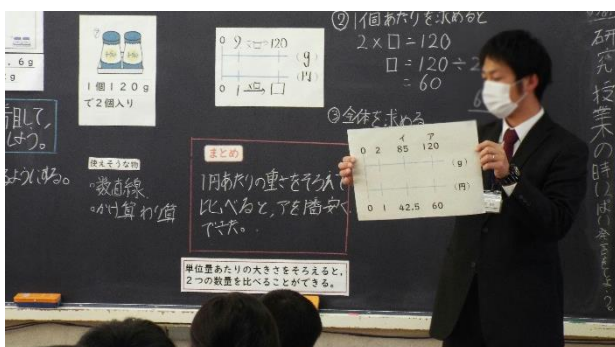 . 6g
ア
1個120g
で2個入り
0 9 120
(g)
(円)
0 1 ×□ □
②1個あたりを求めると
2×□=120
□=120÷2
=60
6
③全体を求める
イ ア
0 2 85 120
(g)
(円)
0 1 42.5 60
しよう。
使えそうな物
・数直線
・かけ算 わり算
まとめ
1円あたりの重さをそろえて
比べると、アを1番安く
できた。
単位量あたりの大きさをそろえると、
2つの数量を比べることができる。
研究授業の時